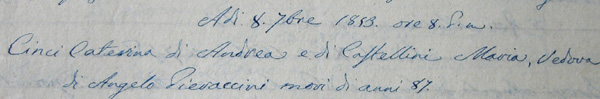 Adì 8. 7bre 1853. ore 8. p.m.
Cinci Caterina di Andrea e di Castellini Maria, Vedova
di Angelo Pieraccini morì di anni 87.